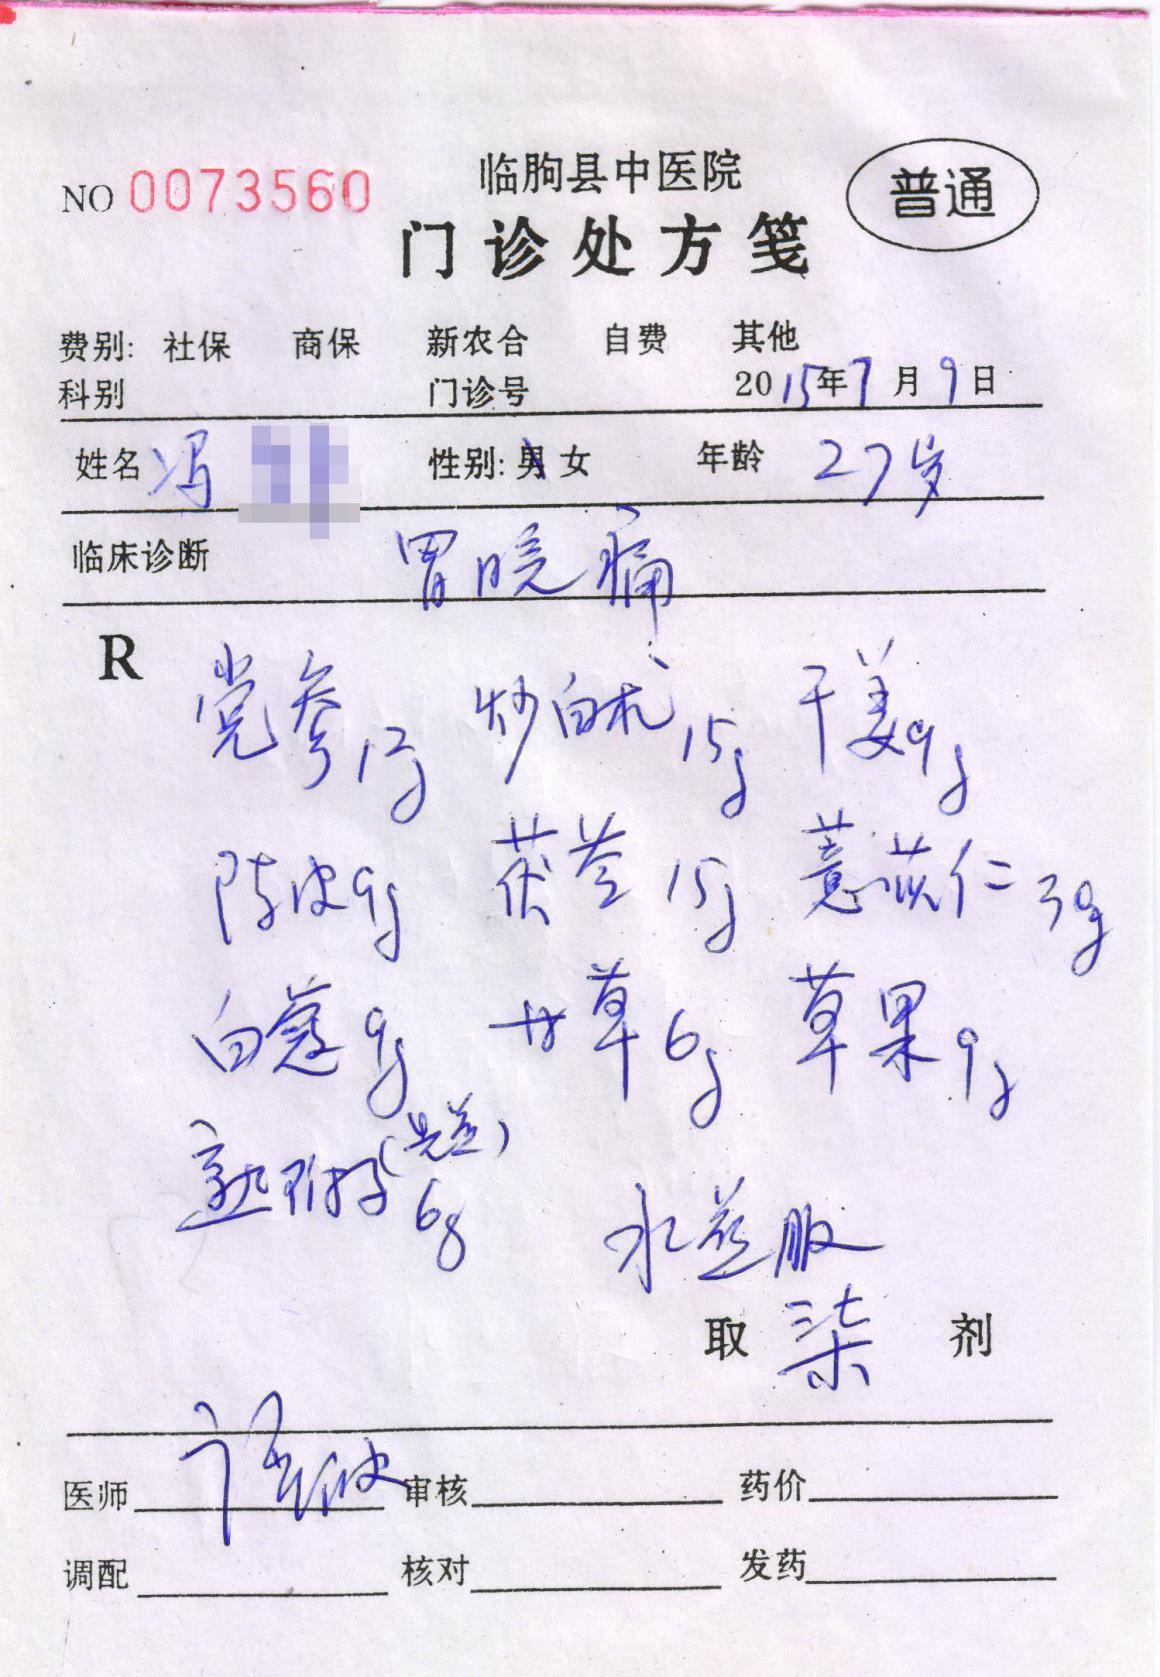 临朐县中医院
NO 0073560
普通
门诊处方笺
费别: 社保 商保 新农合 自费 其他
科别 门诊号 2015年7月9日
姓名 冯 性别: 男 女 年龄 27岁
临床诊断 胃脘痛
R
党参12g 炒白术15g 干姜9g
陈皮9g 茯苓15g 薏苡仁30g
白蔻9g 甘草6g 草果9g
熟附子(先煎)6g
水煎服
取 柒 剂
医师 审核 药价
调配 核对 发药